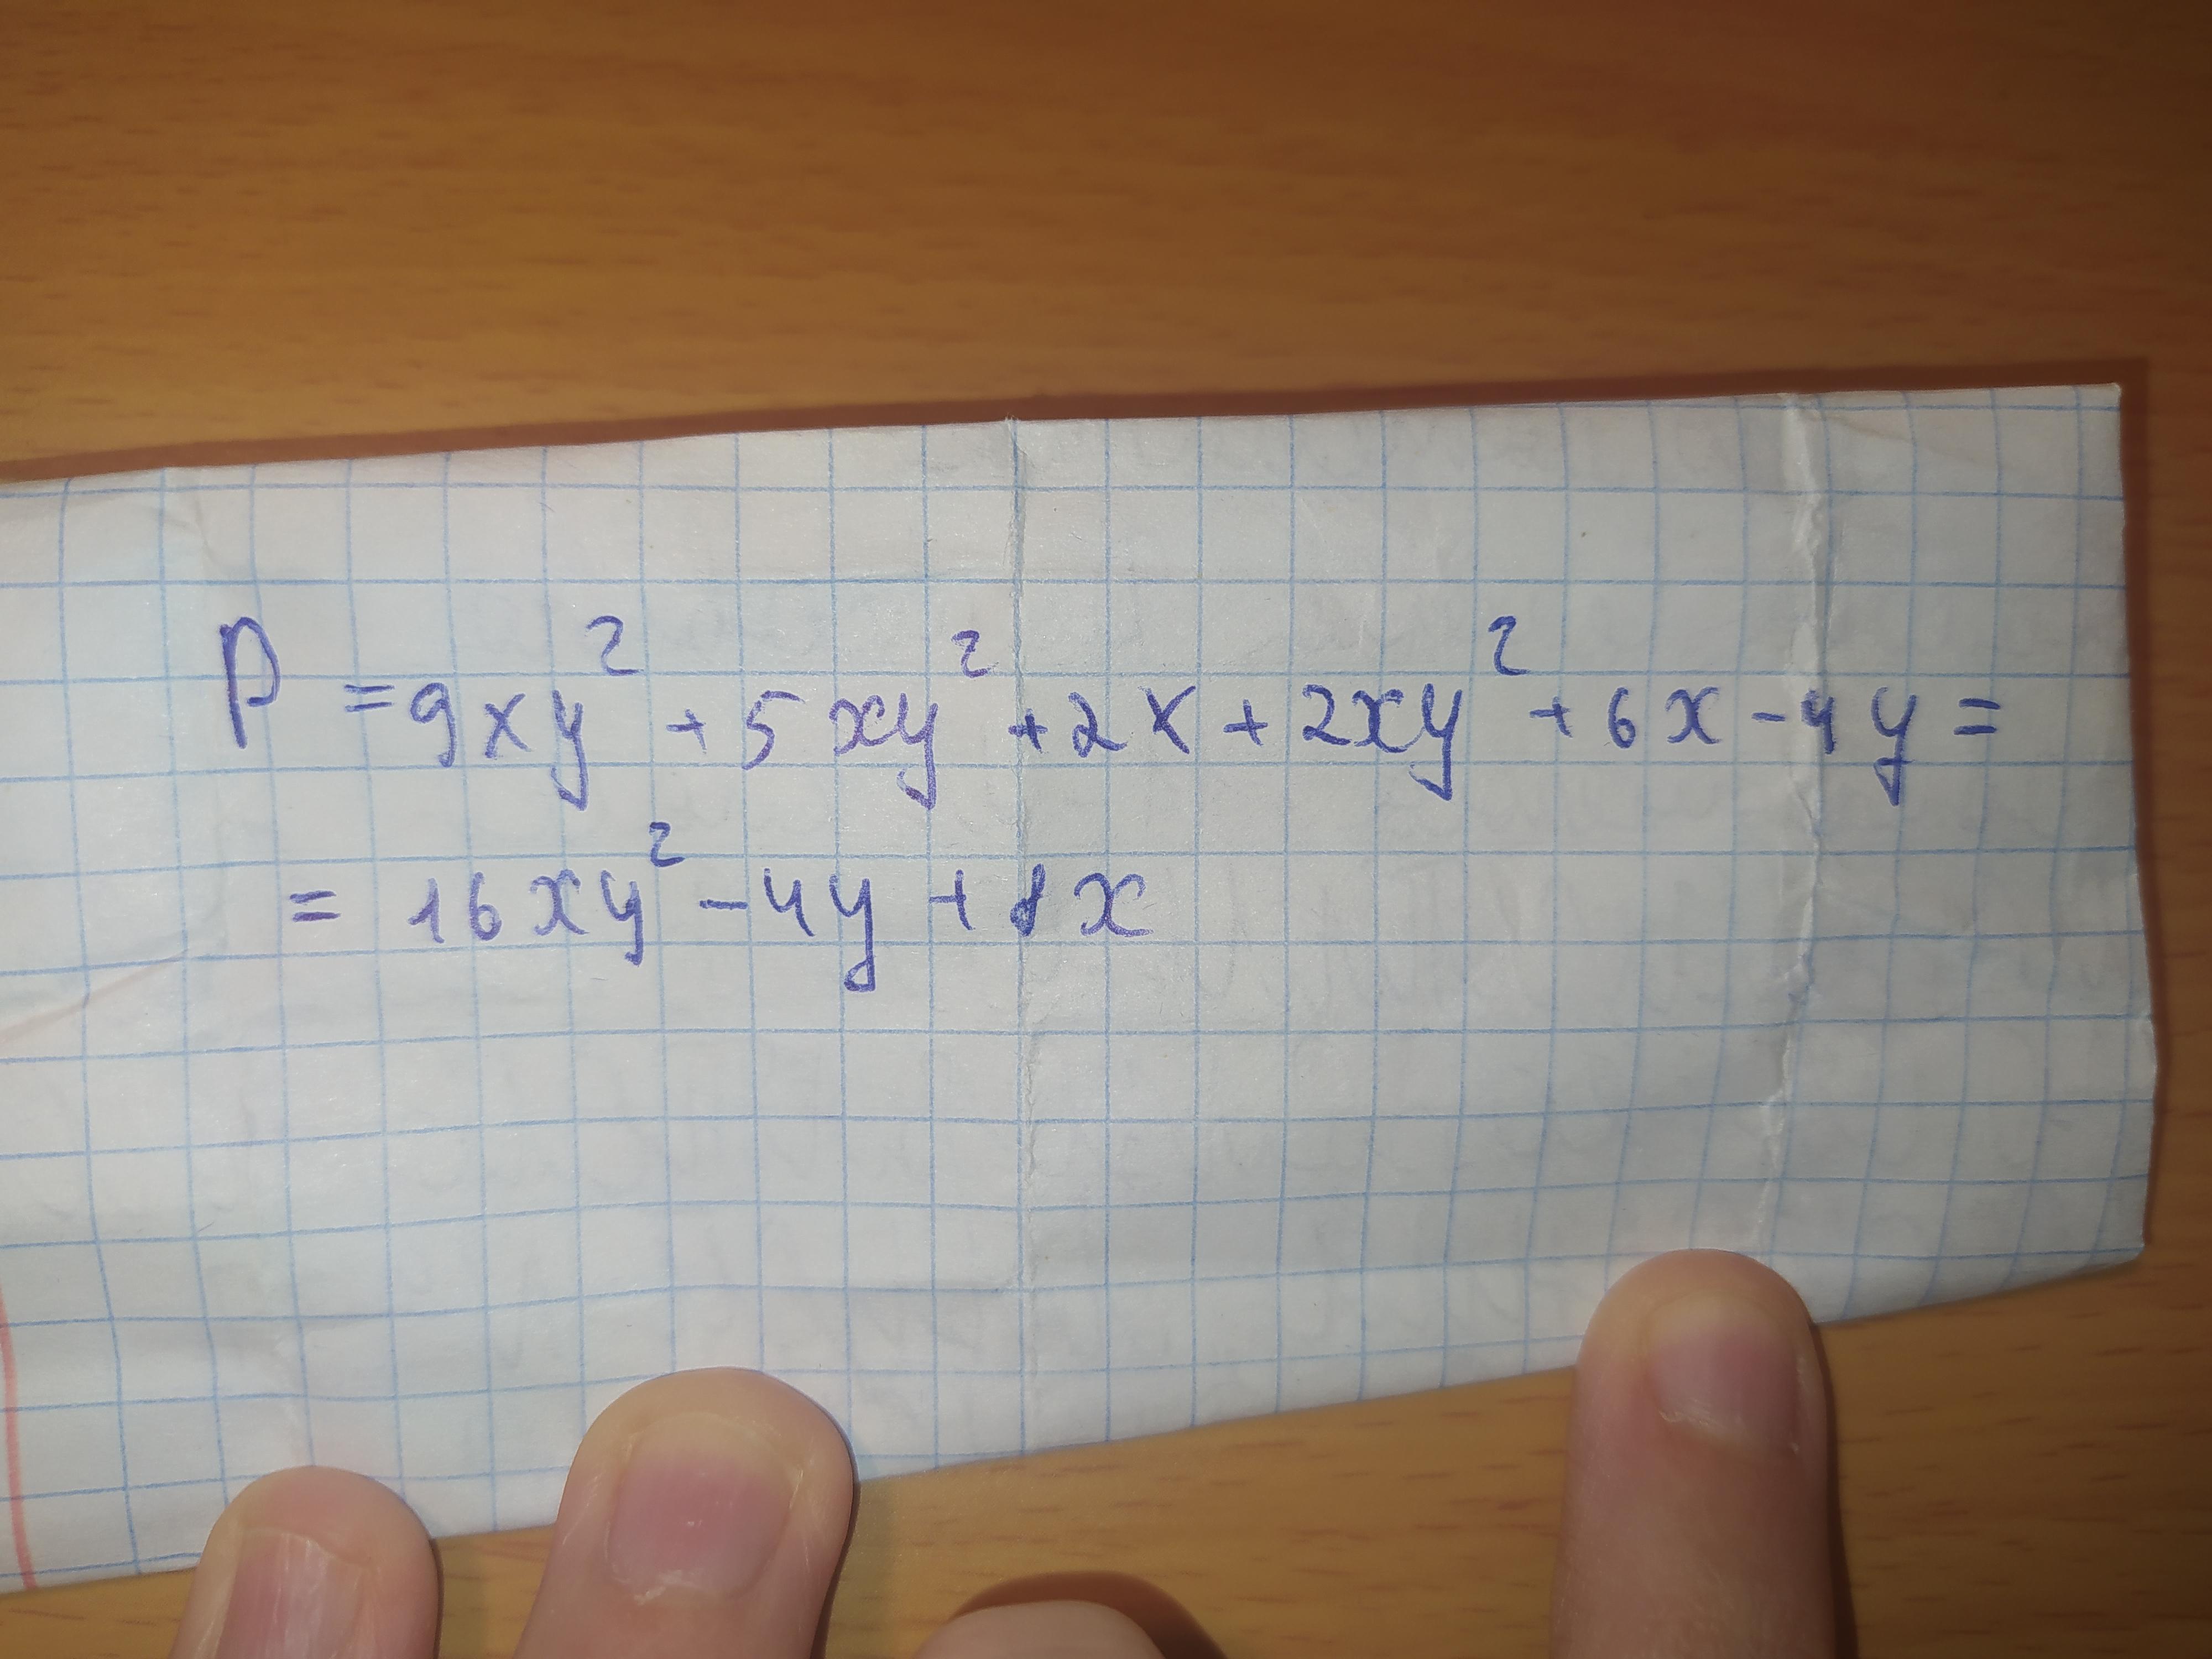 P = 9xy² + 5xy² + 2x + 2xy² + 6x - 4y =
= 16xy² - 4y + 8x